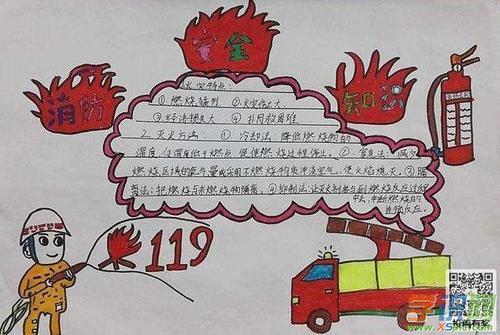 消防
安全
知识
火灾特点：
①燃烧猛烈 ②火灾伤亡大
③经济损失大 ④扑救困难
2. 灭火方法：①冷却法：降低燃烧物的
温度，使温度低于燃点，促使燃烧过程停止。②窒息法：减少
燃烧区域的氧气量或采用不燃烧物质冲淡空气，使火焰熄灭。③隔
离法：把燃烧与未燃烧物隔离。④抑制法：让灭火剂参与到燃烧反应过程
中去，中断燃烧的
连锁反应。
119